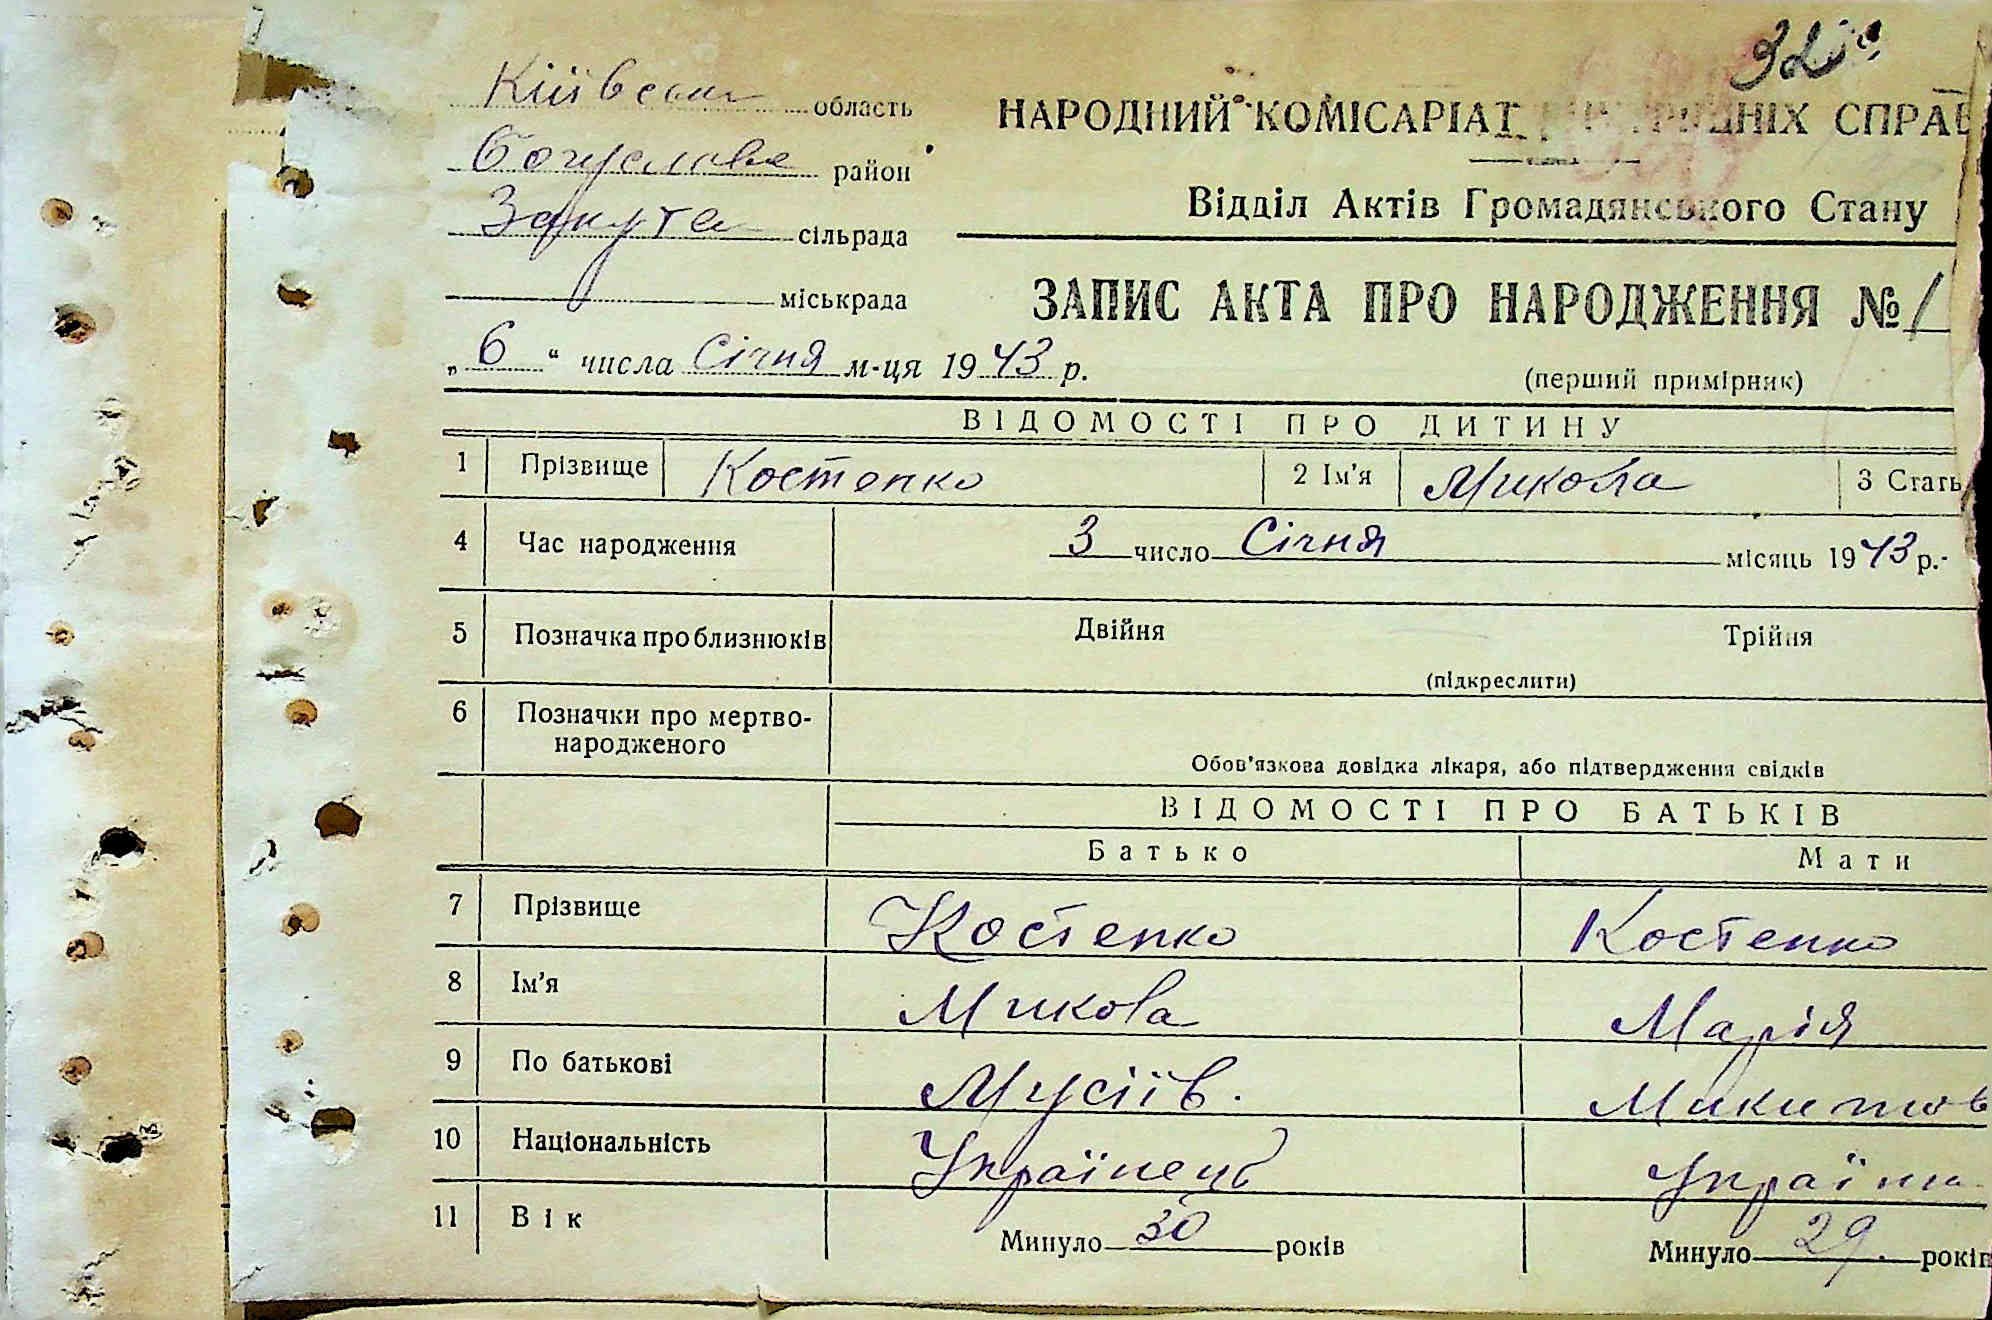 Київськ область
Богуславс район
Закута сільрада
міськрада
„ 6 “ числа Січня м-ця 1943 р.
НАРОДНИЙ КОМІСАРІАТ СПРАВ
Відділ Актів Громадянського Стану
ЗАПИС АКТА ПРО НАРОДЖЕННЯ № 1
(перший примірник)
ВІДОМОСТІ ПРО ДИТИНУ
1 Прізвище Костенко 2 Ім'я Микола 3 Стать
4 Час народження 3 число Січня місяць 1943 р.
5 Позначка про близнюків Двійня Трійня
(підкреслити)
6 Позначки про мертво-
народженого
Обов'язкова довідка лікаря, або підтвердження свідків
ВІДОМОСТІ ПРО БАТЬКІВ
Батько Мати
7 Прізвище Костенко Костенко
8 Ім'я Микола Марія
9 По батькові Мусіїв. Микитов
10 Національність Українець Україн
11 Вік Минуло 30 років Минуло 29. років